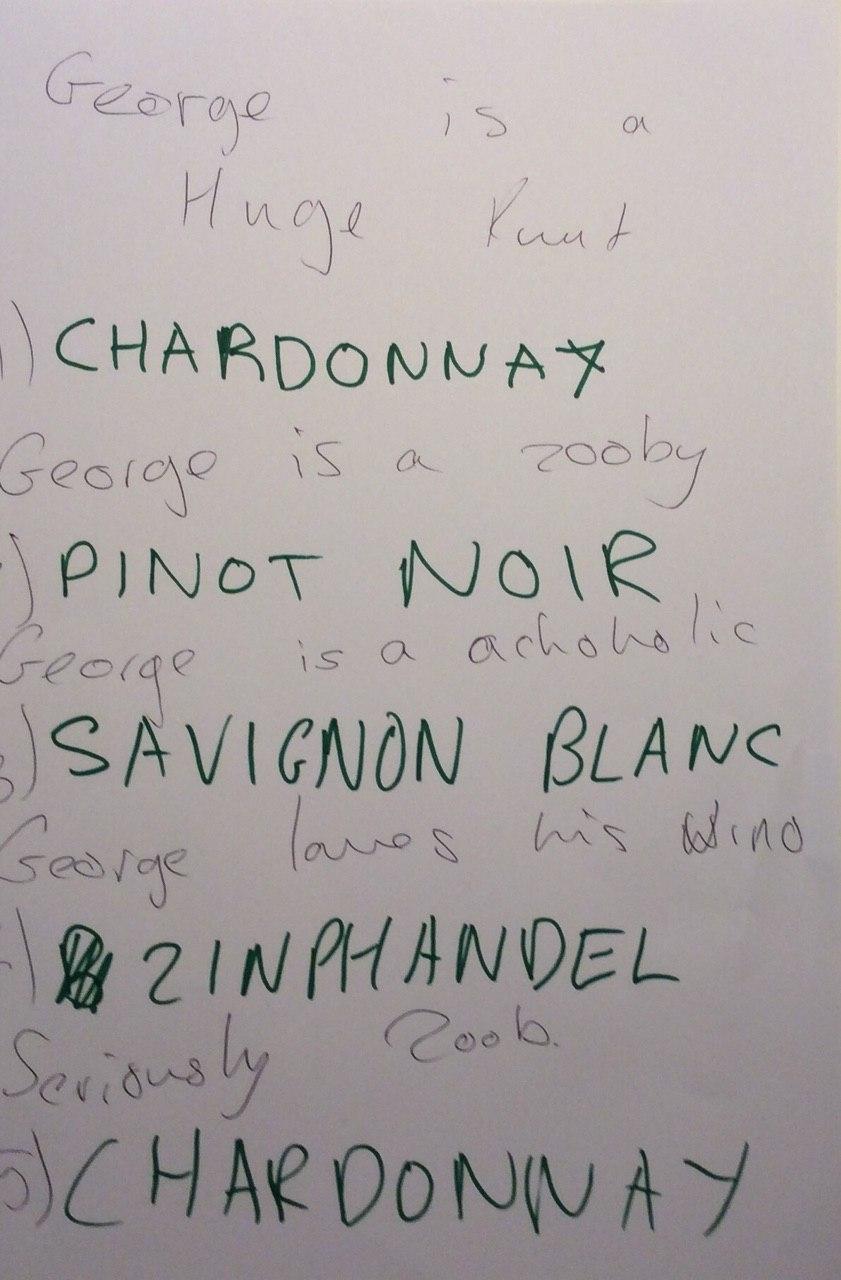 George is a
Huge Kunt
1) CHARDONNAY
George is a zooby
) PINOT NOIR
George is a achoholic
3) SAVIGNON BLANC
George loves his Wino
) ZINPHANDEL
Seriously Zoob.
5) CHARDONNAY